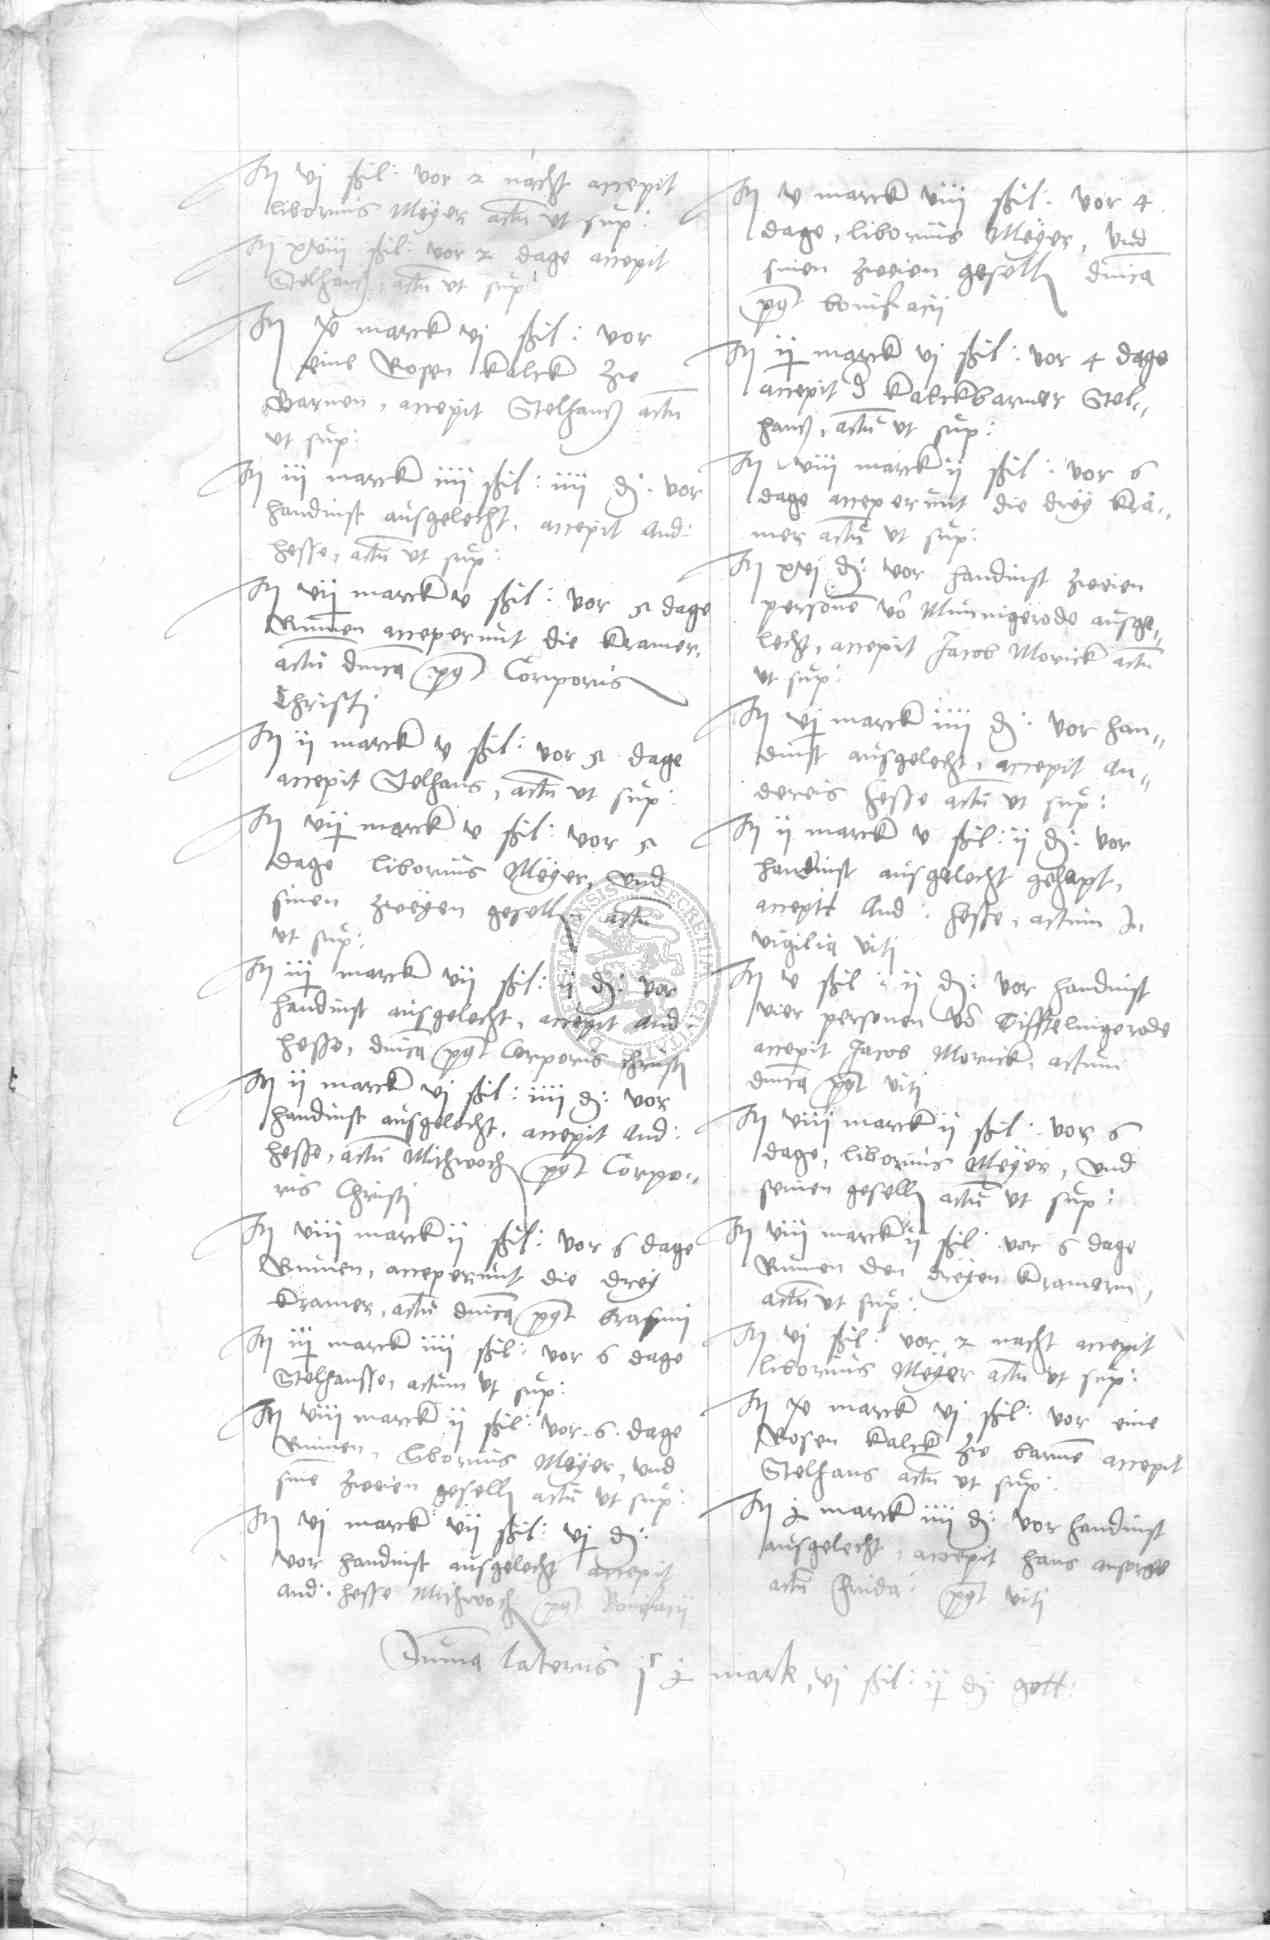 Itē vj ßil: vor 2 nacht accepit
liborius Meÿer actū ut sup:
Itē xviij ßil: vor 2 dage accepit
Stelhans, actū ut sup:
Itē x marck vj ßil: vor
eine Rosen kalck zie
Barnen, accepit Stelhans actū
ut sup:
Itē iij marck iiij ßil: iiij d: vor
handinst ausgelecht, accepit And:
Hesse, actū ut sup:
Itē vij marck v ßil: vor 5 dage
Rumen acceperunt die kramer,
actū dnica post Corporis
Christi
Itē ij marck v ßil: vor 5 dage
accepit Stelhans, actū ut sup:
Itē vij marck v ßil: vor 5
dage liborius Meÿer, und
sinen zweÿen gesell actū
ut sup:
Itē iij marck vij ßil: ij d: vor
handinst ausgelecht, accepit And:
Hesse, dnica post Corporis Christi
Itē ij marck vj ßil: iiij d: vor
handinst ausgelecht, accepit And:
Hesse, actū Mithwoch post Corpo-
ris Christi
Itē viij marck ij ßil: vor 6 dage
Rumen, acceperunt die dreÿ
kramer, actū dnica post Erasmi
Itē iij marck iiij ßil: vor 6 dage
Stelhansse, actum ut sup:
Itē viij marck ij ßil: vor 6 dage
Rumen, Liborius Meÿer, und
sinē zweien gesell actū ut sup:
Itē vj marck vij ßil: vj d:
vor handinst ausgelecht accepit
And: Hesse Mithwoch post Bonifacij
Itē v marck viij ßil: vor 4
dage, liborius Meÿer, und
sinen zweien gesell dnica
post bonifacij
Itē ij marck vj ßil: vor 4 dage
accepit d kalckbarner Stel-
hans, actū ut sup:
Itē viij marck ij ßil: vor 6
dage acceperunt die dreÿ kra-
mer actū ut sup:
Itē xvj d: vor handinst zweien
personē vō Minnigerode ausge-
lecht, accepit Jacob Morick actū
ut sup:
Itē vj marck iiij d: vor han-
dinst ausgelecht, accepit An-
dereis Hesse actū ut sup:
Itē ij marck v ßil: ij d: vor
handinst ausgelecht gehapt,
accepit And: Hesse, actum In
vigilia viti
Itē v ßil: ij d: vor handinst
vier personen vō Tifftelingerode
accepit Jacob Morick, actum
dnica post viti
Itē viij marck ij ßil: vor 6
dage, liborius Meÿer, und
seinen gesell actū ut sup:
Itē viij marck ij ßil: vor 6 dage
Rumen den dreÿen kramern,
actū ut sup:
Itē vj ßil: vor 2 nacht accepit
liborius Meÿer actū ut sup:
Itē x marck vj ßil: vor eine
Rosen kalck zie barnē accepit
Stelhans actū ut sup:
Itē marck iiij d: vor handinst
ausgelecht, accepit Hans
actū post viti
Suma lateris mark, vj ßil: ij d gott: